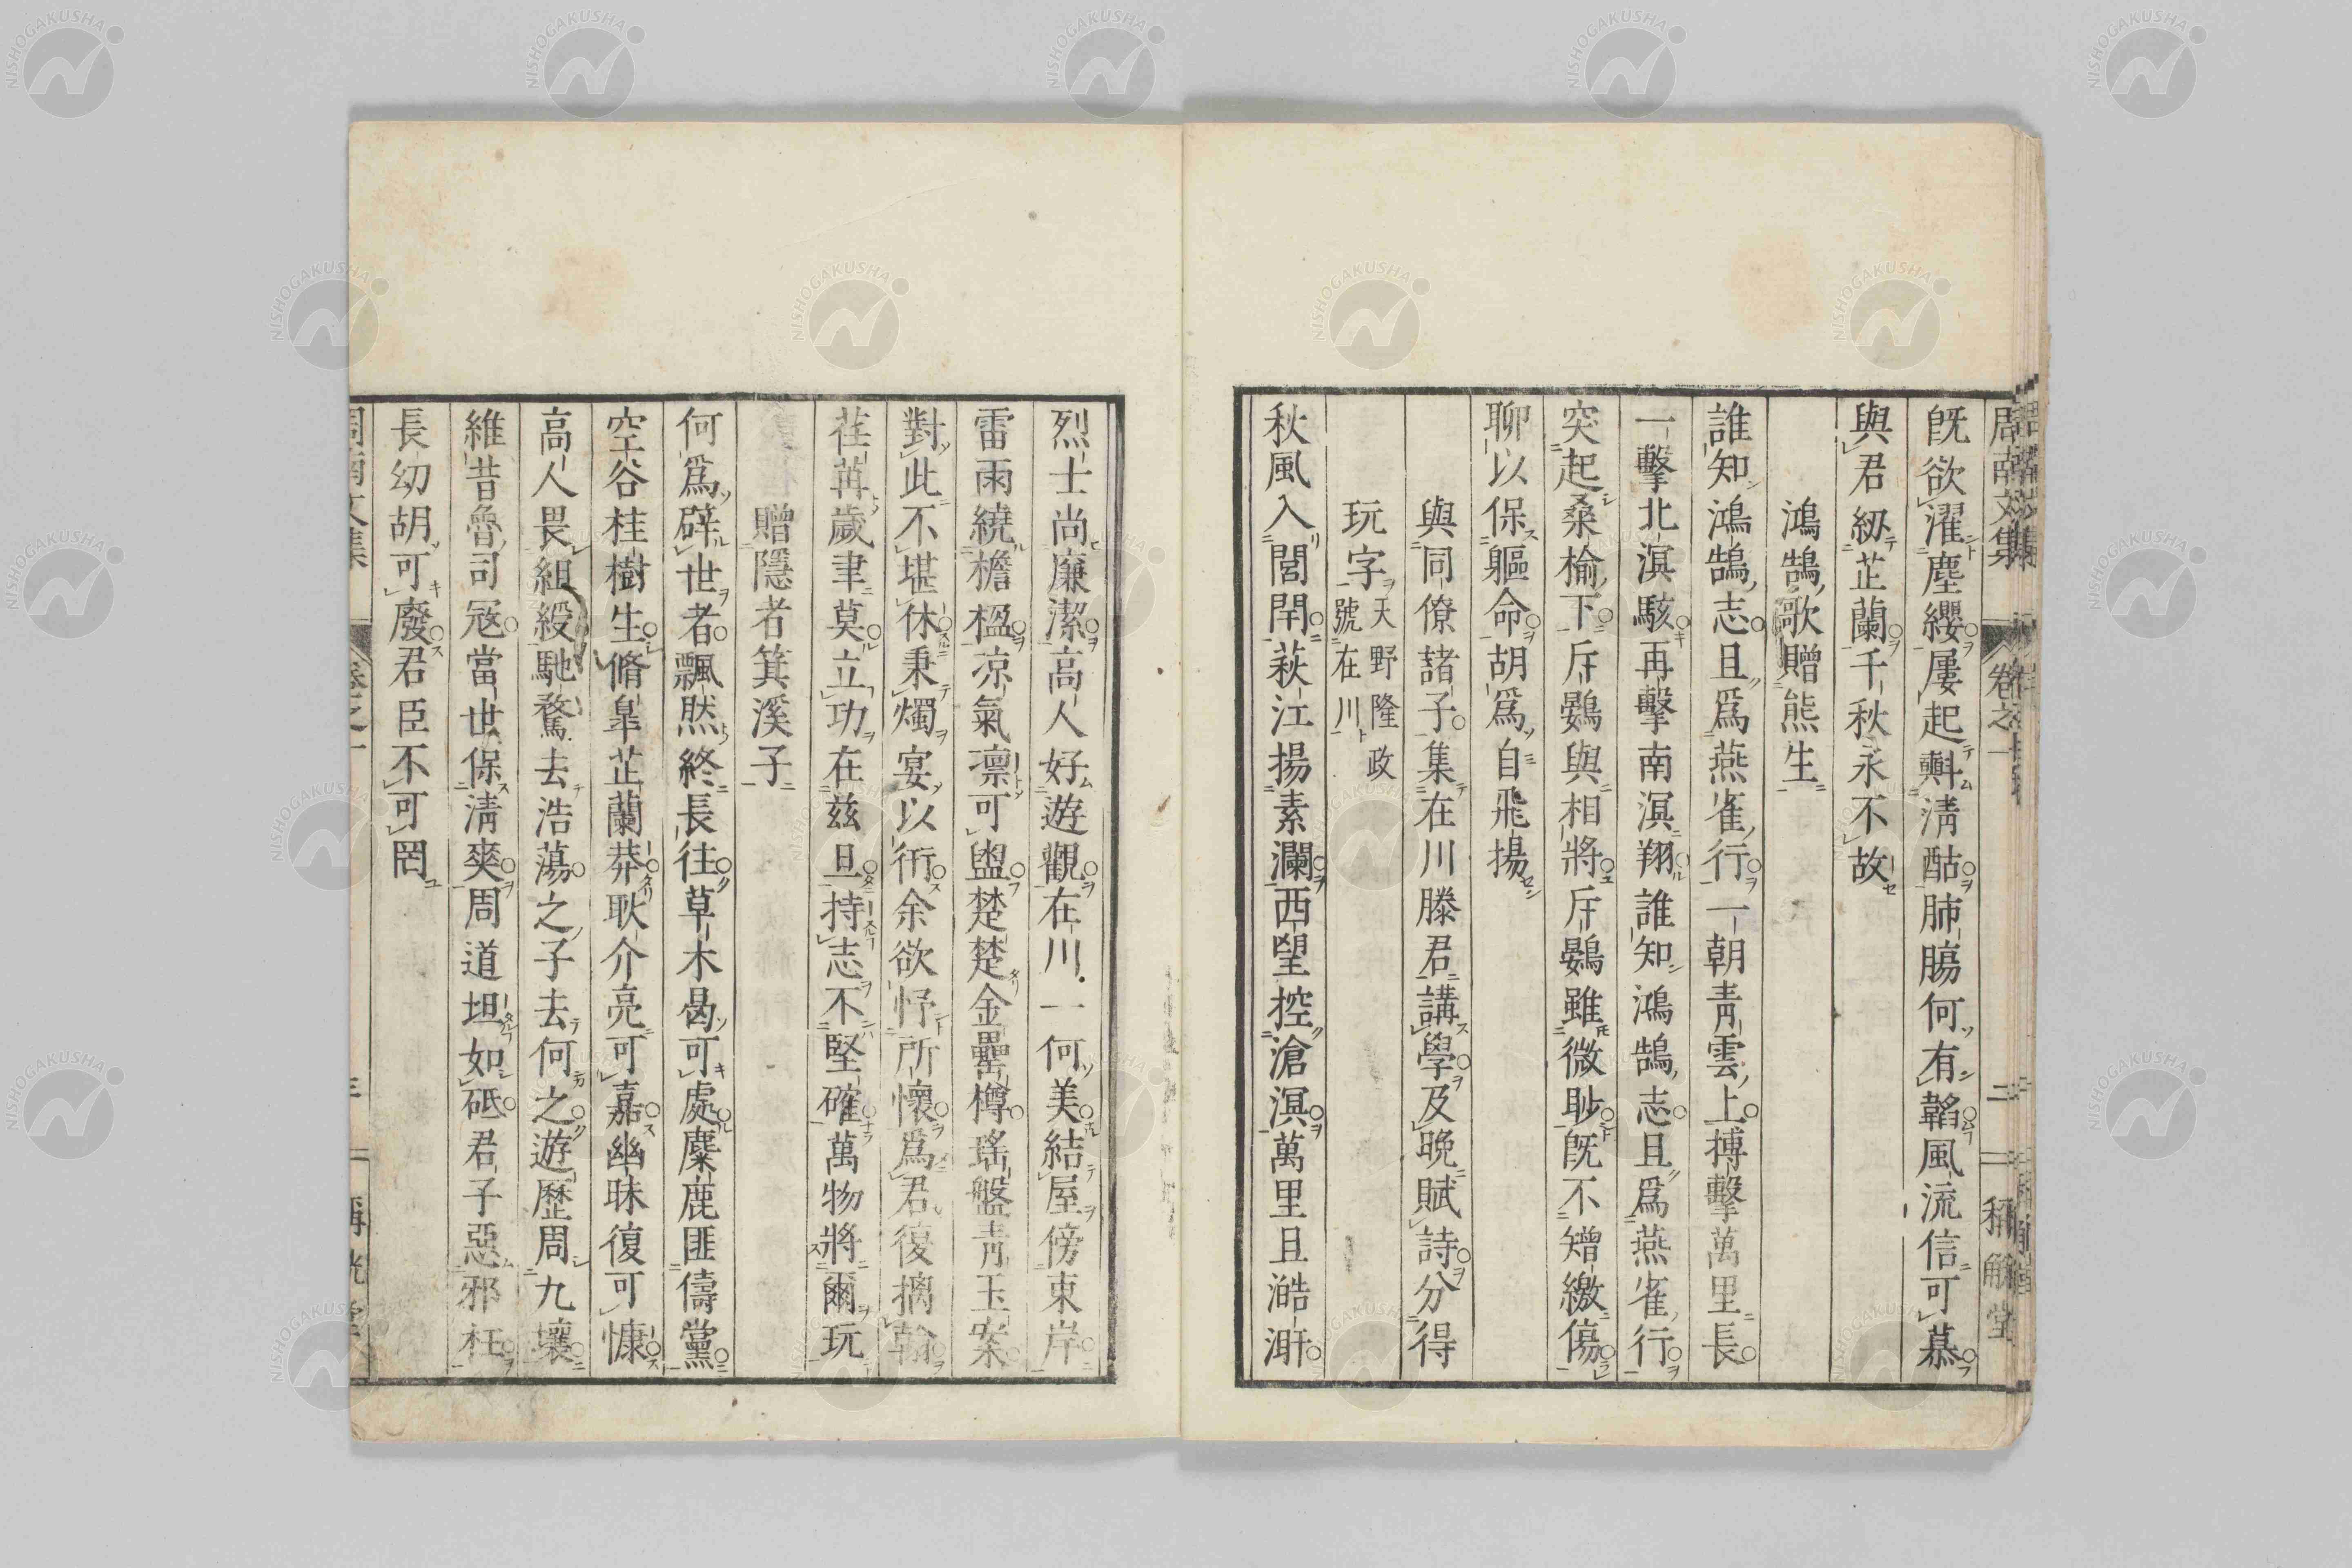 周南文集 卷之一 二 稱觥堂
旣欲濯塵纓屢起㪺淸酤肺膓何有韜風流信可慕
與君紉芷蘭千秋永不故
鴻鵠歌贈熊生
誰知鴻鵠志且爲燕雀行一朝靑雲上搏擊萬里長
一擊北溟駭再擊南溟翔誰知鴻鵠志且爲燕雀行
突起桑楡下斥鷃與相將斥鷃雖微眇旣不矰繳傷
聊以保軀命胡爲自飛揚
與同僚諸子集在川滕君講學及晚賦詩分得
玩字天野隆政
號在川
秋風入閭閈萩江揚素瀾西望控滄溟萬里且澔汗
烈士尚廉潔高人好遊觀在川一何美結屋傍東岸
雷雨繞檐楹凉氣凛可盥楚楚金罍樽瑤盤靑玉案
對此不堪休秉燭宴以衎余欲抒所懷爲君復摛翰
荏苒歲聿莫立功在茲旦持志不堅確萬物將爾玩
贈隱者箕溪子
何爲辟世者飄然終長往草木曷可處麋鹿匪儔黨
空谷桂樹生脩皐芷蘭莽耿介亮可嘉幽昧復可慷
高人畏組綬馳騖去浩蕩之子去何之遊歷周九壤
維昔魯司寇當世保淸爽周道坦如砥君子惡邪枉
長幼胡可廢君臣不可罔
周南文集 卷之一 三 稱觥堂